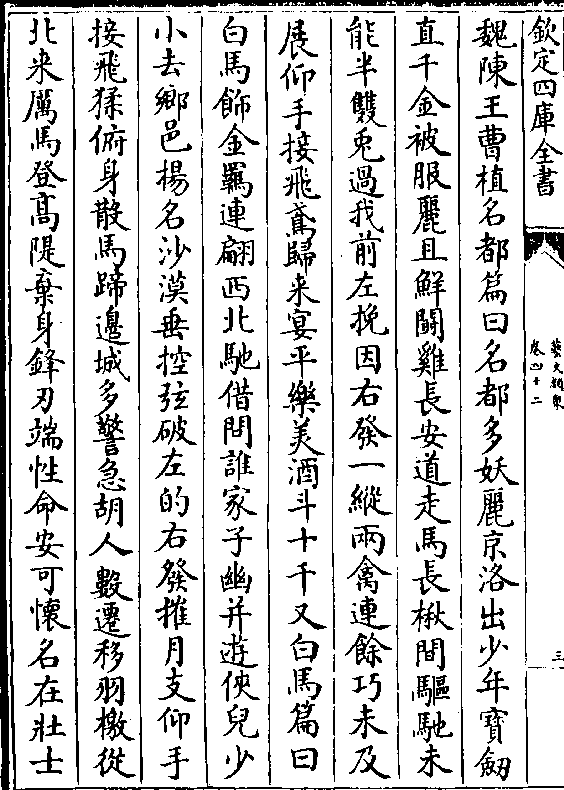 欽定四庫全書
藝文類聚
卷四十二
三
魏陳王曹植名都篇曰名都多妖麗京洛出少年寶劒
直千金被服麗且鮮鬭雞長安道走馬長楸間驅馳未
能半雙兎過我前左挽因右發一縱兩禽連餘巧未及
展仰手接飛鳶歸来宴平樂美酒斗十千又白馬篇曰
白馬飾金羈連翩西北馳借問誰家子幽并遊俠兒少
小去鄉邑楊名沙漠垂控弦破左的右發摧月支仰手
接飛猱俯身散馬蹄邊城多警急胡人數遷移羽檄從
北来厲馬登髙隄棄身鋒刃端性命安可懷名在壯士